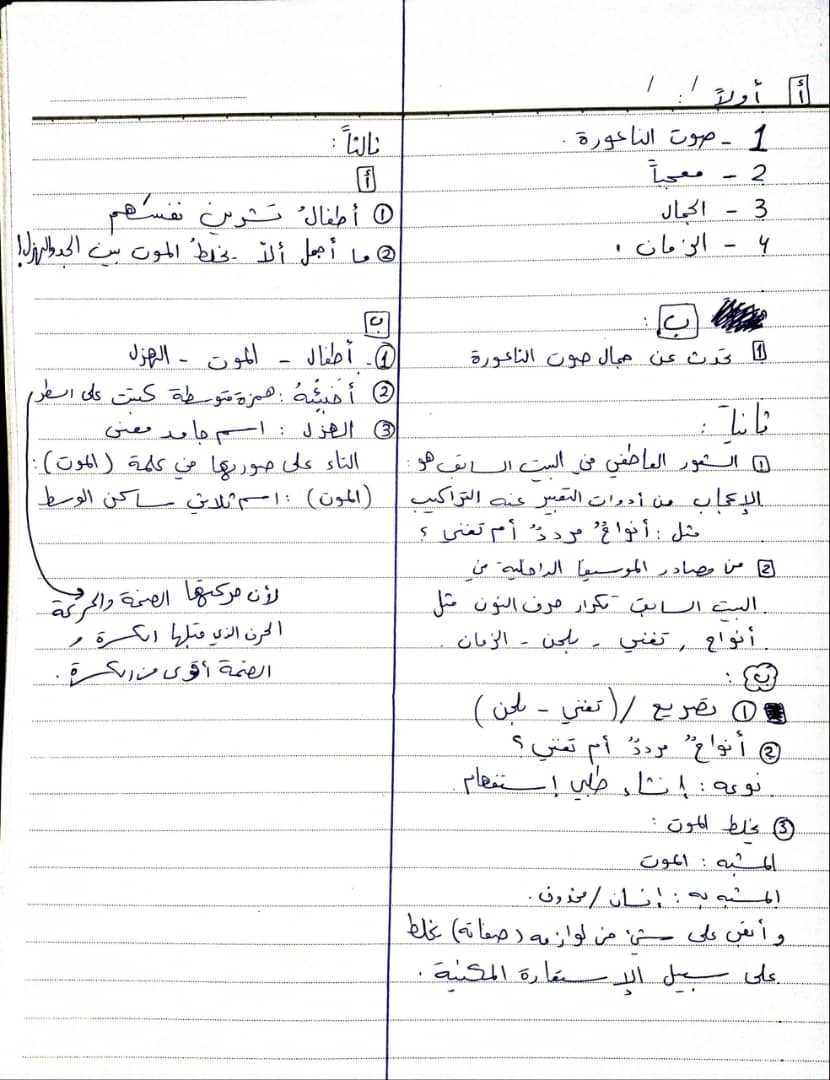 أ أولاً :
1 - صوت الناعورة .
2 - معجباً
3 - الجمال
4 - الزمان .
ب :
1 تحدث عن جمال صوت الناعورة
ثانياً :
1 الشعور العاطفي في البيت السابق هو :
الإعجاب من أدوات التعبير عنه التراكيب
مثل : أنواحٌ مرددٌ أم تغني ؟
2 من مصادر الموسيقا الداخلية في
البيت السابق تكرار حرف النون مثل
أنواح , تغني - بلحن - الزمان .
ب :
1 تصريع / (تغني - بلحن)
2 أنواحٌ مرددٌ أم تغني ؟
نوعه : إنشاء طلبي إستفهام
3 يخلط الموت :
المشبه : الموت
المشبه به : إنسان / محذوف .
و أبقى على شيء من لوازمه (صفاته) يخلط
على سبيل الإستعارة المكنية .
ثالثاً :
أ
1 أطفالُ تشرين نفسكهم
2 ما أجمل ألّا يخلطُ الموت بين الجد والهزل!
ب
1 - أطفال - الموت - الهزل
2 : همزة متوسطة كتبت على السطر
3 الهزل : اسم جامد معنى
التاء على صورتها في كلمة (الموت) :
(الموت) : اسم ثلاثي ساكن الوسط
لأن حركتها الضمة والحركة
الحرف الذي قبلها الكسرة و
الضمة أقوى من الكسرة .